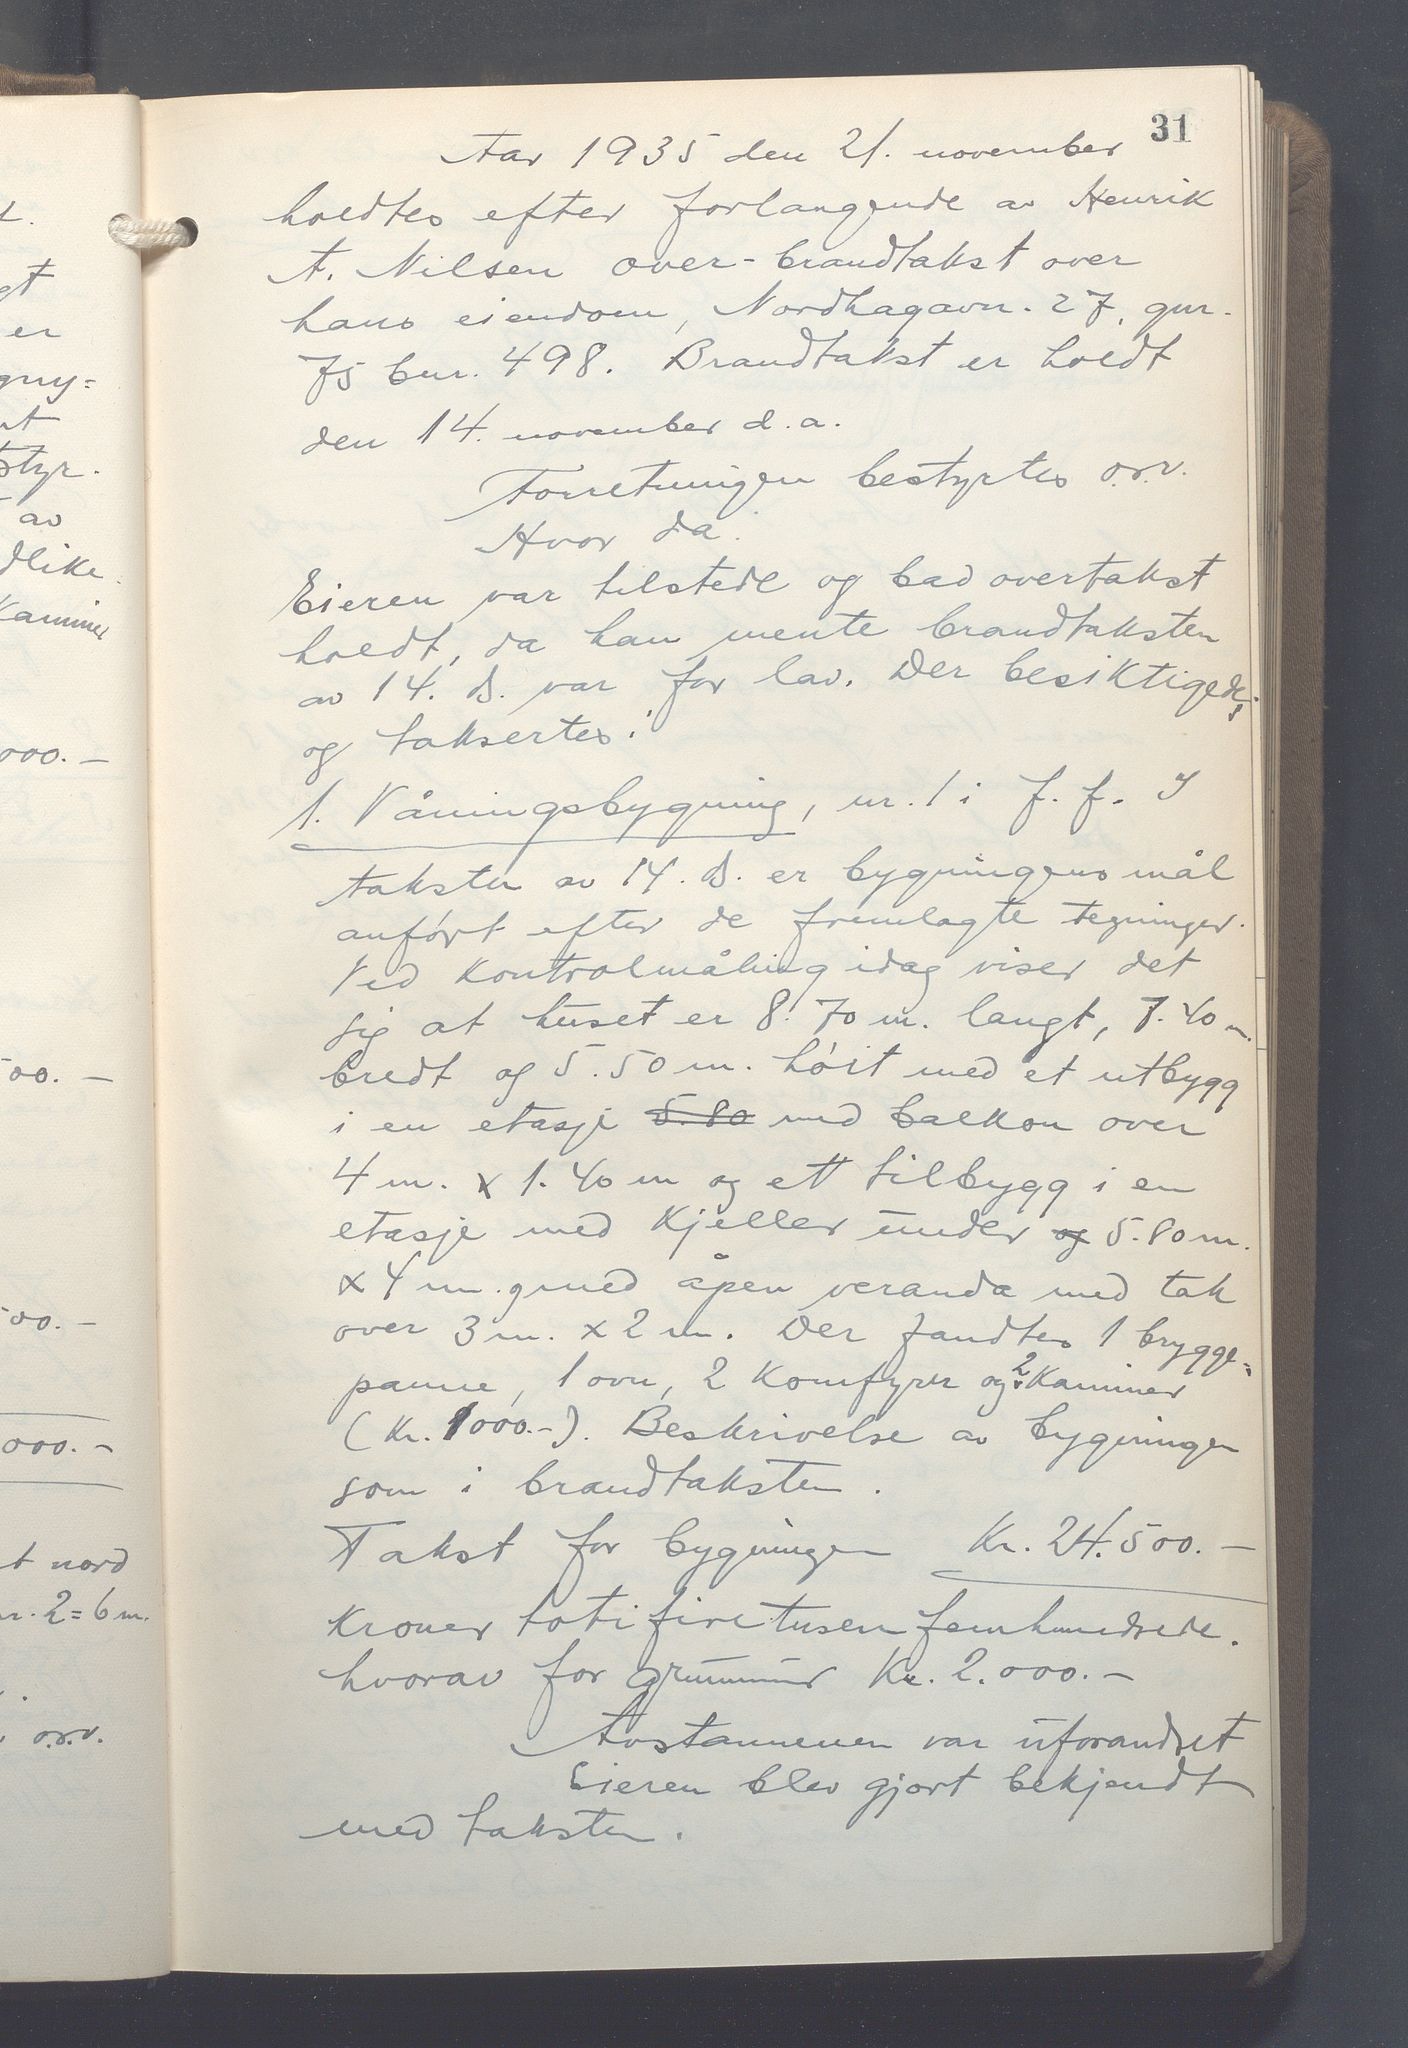 31
Aar 1935 den 21. november
holdtes efter forlangende av Henrik
A. Nilsen over-brandtakst over
hans eiendom, Nordhagavn. 27, gnr.
75 bnr. 498. Brandtakst er holdt
den 14. november d.a.
Forretningen bestyrtes o.s.v.
Hvor da:
Eieren var tilstede og bad overtakst
holdt, da han mente brandtaksten
av 14. ds. var for lav. Der besiktigedes
og taksertes:
1. Våningsbygning, nr. 1 i f. f. I
taksten av 14. ds. er bygningens mål
anført efter de fremlagte tegninger.
Ved kontrolmåling idag viser det
sig at huset er 8.70 m. langt, 7.40 m.
bredt og 5.50 m. høit med et utbygg
i en etasje 5.80 med balkon over
4 m. x 1.40 m og ett tilbygg i en
etasje med kjeller under og 5.80 m.
x 4 m. med åpen veranda med tak
over 3 m. x 2 m. Der fandtes 1 brygge-
panne, 1 ovn, 2 komfyrer og 2 kaminer
(Kr. 1000.-). Beskrivelse av bygningen
som i brandtaksten.
Takst for bygningen Kr. 24.500.-
Kroner totifiretusenfemhundrede.
hvorav for grunmur Kr. 2.000.-
Avstannenen var uforandret
Eieren blev gjort bekjendt
med taksten.
gt
er
gny=
styr.
av
dlike
kaminer
000.-
500.-
500.-
000.-
t nord
nr. 2 = 6 m.
o.s.v.